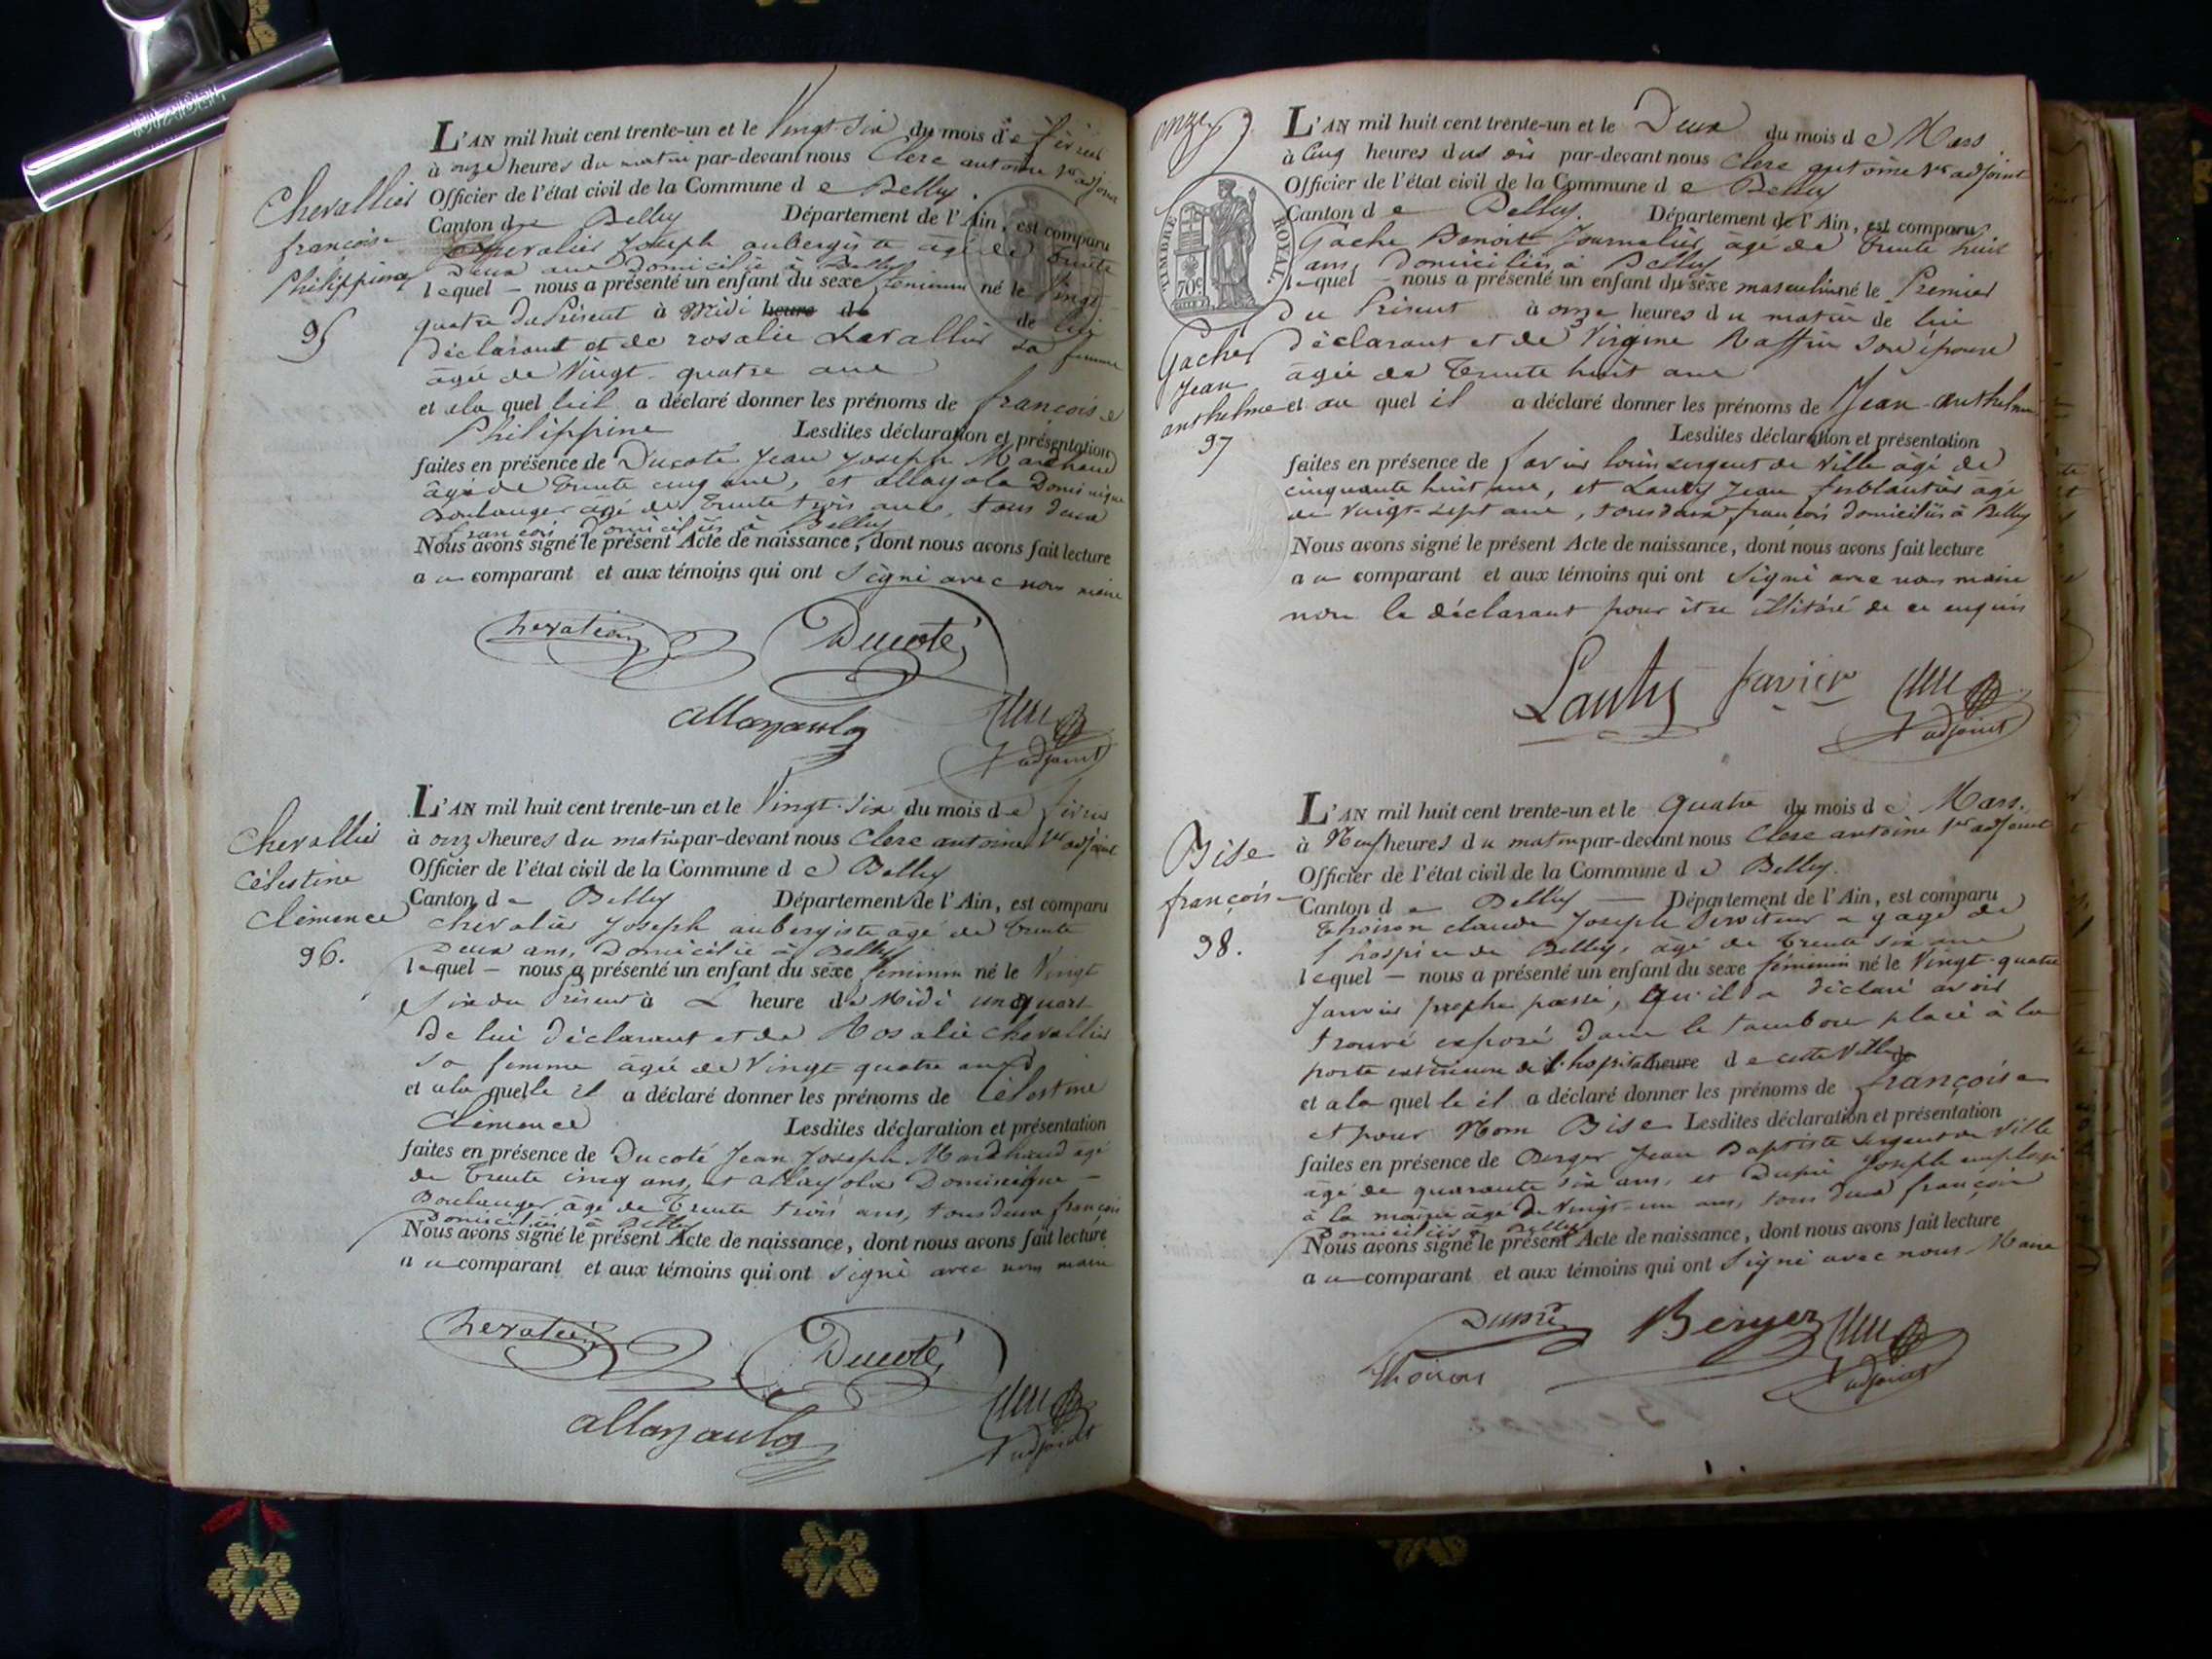 Chevallier
françoise
Philippine
95
L'AN mil huit cent trente-un et le Vingt-Six du mois de février
à onze heures du matin par-devant nous Clerc antoine 1er adjoint
Officier de l'état civil de la Commune de Belley.
Canton de Belley Département de l'Ain, est comparu
Chevalier Joseph aubergiste agé de trente
Deux ans Domicilié à Belley
lequel – nous a présenté un enfant du sexe feminin né le Vingt
quatre du Présent à Midi heure de de lui
déclarant et de rosalie sa femme
agée de Vingt-quatre ans
et a la quel il a déclaré donner les prénoms de françoise
Philippine Lesdites déclaration et présentation
faites en présence de Ducoté Jean Joseph Marchand
âgé de trente cinq ans, et allayola Dominique
Boulanger agé de trente trois ans, tous deux
francois Domiciliés à Belley
Nous avons signé le présent Acte de naissance, dont nous avons fait lecture
au comparant et aux témoins qui ont Signé avec nous maire
Chevalier Ducoté
1er adjoint
Chevallier
Célestine
Clémence
96.
L'AN mil huit cent trente-un et le Vingt-Six du mois de février
à onze heures du matin par-devant nous Clerc antoine 1er adjoint
Officier de l'état civil de la Commune de Belley
Canton de Belley Département de l'Ain, est comparu
Chevalier Joseph aubergiste agé de trente
Deux ans, Domicilié à Belley
lequel – nous a présenté un enfant du sexe feminin né le Vingt
Six du Présent à L heure de Midi un quart
De lui déclarant et de Rosalie Chevallier
sa femme agée de Vingt quatre ans
et a la quelle il a déclaré donner les prénoms de Célestine
Clémence Lesdites déclaration et présentation
faites en présence de Ducoté Jean Joseph Marchand agé
de trente cinq ans, et allayola Dominique –
Boulanger, âgé de trente trois ans, tous deux françois
Domiciliés à Belley
Nous avons signé le présent Acte de naissance, dont nous avons fait lecture
au comparant et aux témoins qui ont signé avec nous maire
Chevalier Ducoté
1er adjoint
onze
TIMBRE ROYAL.
70c
Gache
Jean
anthelme
97
L'AN mil huit cent trente-un et le Deux du mois de Mars
à Cinq heures du soir par-devant nous Clerc antoine 1er adjoint
Officier de l'état civil de la Commune de Belley
Canton de Belley. Département de l'Ain, est comparu
Gache Benoit Journalier, âgé de trente huit
ans, Domicilié à Belley
lequel – nous a présenté un enfant du sexe masculin né le Premier
du Présent à onze heures du matin de lui
déclarant et de Virgine Raffin son épouse
agée de trente huit ans
et au quel il a déclaré donner les prénoms de Jean-anthelme
Lesdites déclaration et présentation
faites en présence de favier sergent de Ville âgé de
cinquante huit ans, et Lauty Jean ferblantier agé
de vingt-sept ans, tous deux françois domiciliés à Belley
Nous avons signé le présent Acte de naissance, dont nous avons fait lecture
au comparant et aux témoins qui ont Signé avec nous maire
non le déclarant pour être illitéré de ce enquis
Lauty favier
1er adjoint
Bise
françoise
98.
L'AN mil huit cent trente-un et le Quatre du mois de Mars.
à Neuf heures du matin par-devant nous Clerc antoine 1er adjoint
Officier de l'état civil de la Commune de Belley.
Canton de Belley — Département de l'Ain, est comparu
Thoiron claude Joseph Serviteur a gage de
l'hospice de Belley, agé de trente six ans
lequel – nous a présenté un enfant du sexe féminin né le Vingt-quatre
Janvier proche passé, Qu'il a déclaré avoir
trouvé exposé dans le tambour placé à la
porte extérieure de l'hopital heure de cette Ville
et a la quelle il a déclaré donner les prénoms de françoise
et pour Nom Bise Lesdites déclaration et présentation
faites en présence de Berger Jean Baptiste Sergent de Ville
agé de quarante six ans, et Dupré Joseph employé
à la mairie âgé de Vingt-un ans, tous deux françois
Domiciliés à Belley
Nous avons signé le présent Acte de naissance, dont nous avons fait lecture
au comparant et aux témoins qui ont Signé avec nous Maire
Dupré Berger
Thoiron
1er adjoint